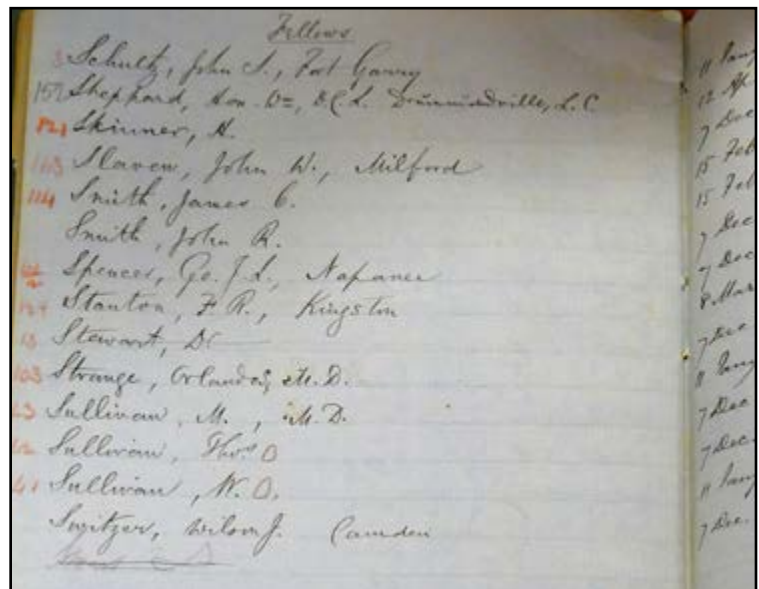 Fellows
3 Schultz, John S., Fort Garry
152 Sheppard, Hon. Wm, D.C.L. Drummondville, L.C.
121 Skinner, H.
113 Slaven, John W., Milford
114 Smith, James C.
Smith, John R.
Spencer, Geo. J. L., Napanee
Stanton, F. R., Kingston
13 Stewart, Dr
103 Strange, Orlando S., M.D.
Sullivan, M., M.D.
Sullivan, Thos O
Sullivan, W. O.
Switzer, Wilson J. Camden
11 Jany
12 Ap
7 Dec
15 Feb
15 Feb
7 Dec
7 Dec
8 Mar
7 Dec
11 Jany
7 Dec
7 Dec.
11 Jany
7 Dec.